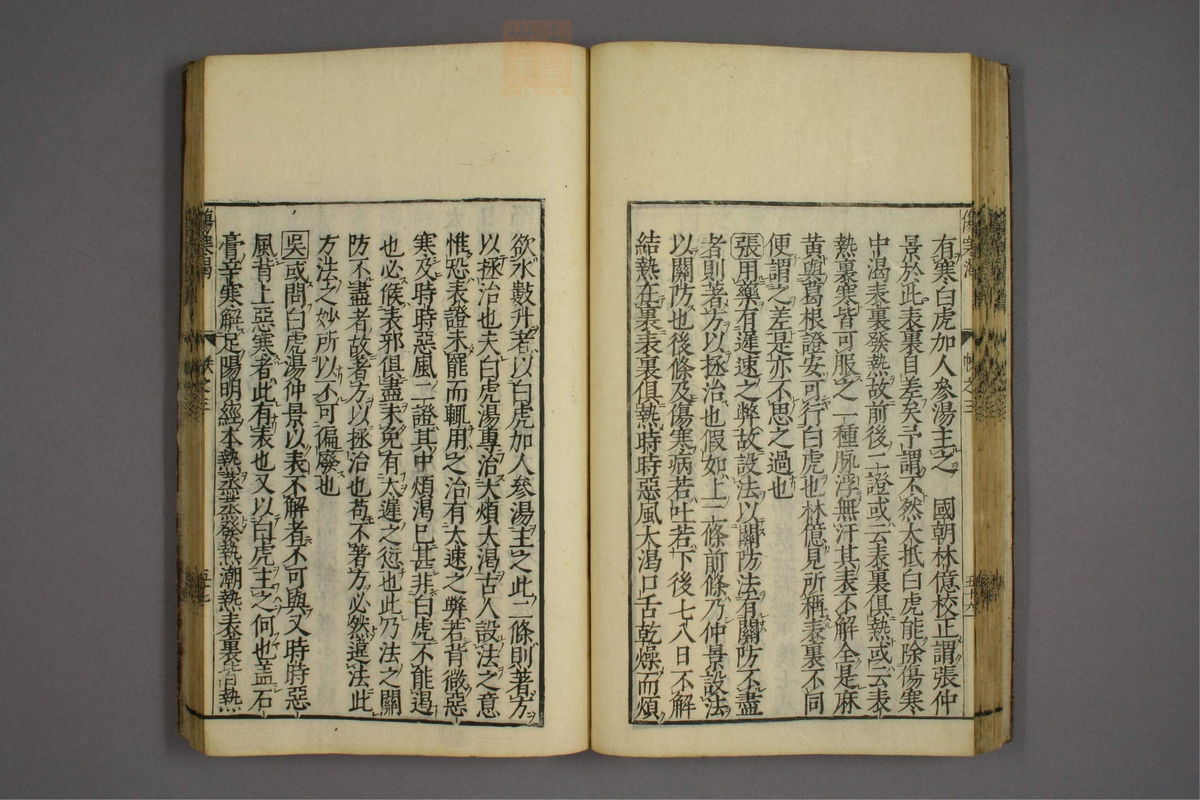 有寒白虎加人參湯主之　國朝林億校正謂張仲
景於此表裏自差矣予謂不然大抵白虎能除傷寒
中渴表裏發熱故前後二證或云表裏俱熱或云表
熱裏寒皆可服之一種脉浮無汗其表不解全是麻
黃與葛根證安可行白虎也林億見所稱表裏不同
便謂之差是亦不思之過也
張用藥有遲速之弊故設法以關防法有關防不盡
者則著方以拯治也假如上二條前條乃仲景設法
以關防也後條及傷寒病若吐若下後七八日不解
結熱在裏表裏俱熱時時惡風大渴口舌乾燥而煩
欲水數升者以白虎加人參湯主之此二條則著方
以拯治也夫白虎湯專治大煩大渴古人設法之意
惟恐表證未罷而輒用之治有太速之弊若背微惡
寒及時時惡風二證其中煩渴已甚非白虎不能遏
也必候表邪俱盡未免有太遲之愆也此乃法之關
防不盡者故著方以拯治也苟不著方必然違法此
方法之妙所以不可偏廢也
吳或問白虎湯仲景以表不解者不可與又時時惡
風背上惡寒者此有表也又以白虎主之何也盖石
膏辛寒解足陽明經本熱蒸蒸發熱潮熱表裏皆熱
卷之三
五十六
五十七